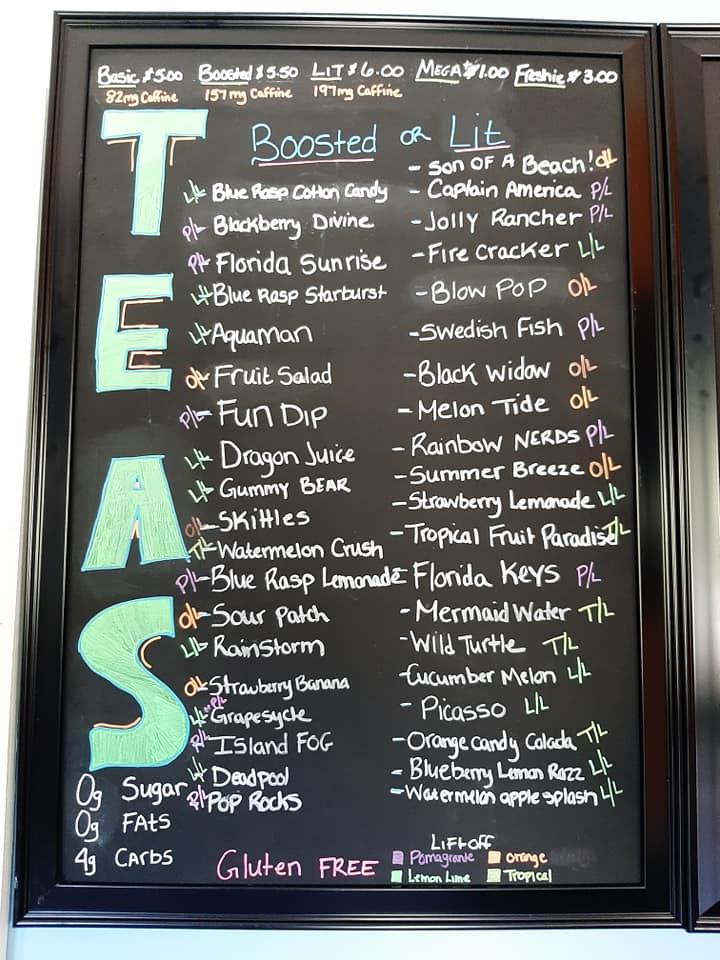 Basic $5.00 Boosted $5.50 LIT $6.00 MEGA $1.00 Freshie $3.00
82mg Caffine 157mg Caffine 197mg Caffine
TEAS
BOOSTED OR LIT
L/L- Blue Rasp Cotton Candy
P/L- Blackberry Divine
P/L- Florida Sunrise
L/L- Blue Rasp Starburst
L/L- Aquaman
O/L- Fruit Salad
P/L- Fun Dip
L/L- Dragon Juice
L/L- Gummy BEAR
O/L- Skittles
T/L- Watermelon Crush
P/L- Blue Rasp Lemonade
O/L- Sour Patch
L/L- Rainstorm
O/L- Strawberry Banana
L/L- or P/L Grapesycle
P/L- Island FOG
L/L- Deadpool
P/L- POP Rocks
- Son OF A Beach! O/L
- Captain America P/L
- Jolly Rancher P/L
- Fire Cracker L/L
- Blow Pop O/L
- Swedish Fish P/L
- Black Widow O/L
- Melon Tide O/L
- Rainbow NERDS P/L
- Summer Breeze O/L
- Strawberry Lemonade L/L
- Tropical Fruit Paradise T/L
- Florida Keys P/L
- Mermaid Water T/L
- Wild Turtle T/L
- Cucumber Melon L/L
- Picasso L/L
- Orange Candy Colada T/L
- Blueberry Lemon Razz L/L
- Watermelon apple splash L/L
0g Sugar
0g FAts
4g CARbs
Gluten FREE
LiFtoff
Pomagrante Orange
Lemon Lime Tropical